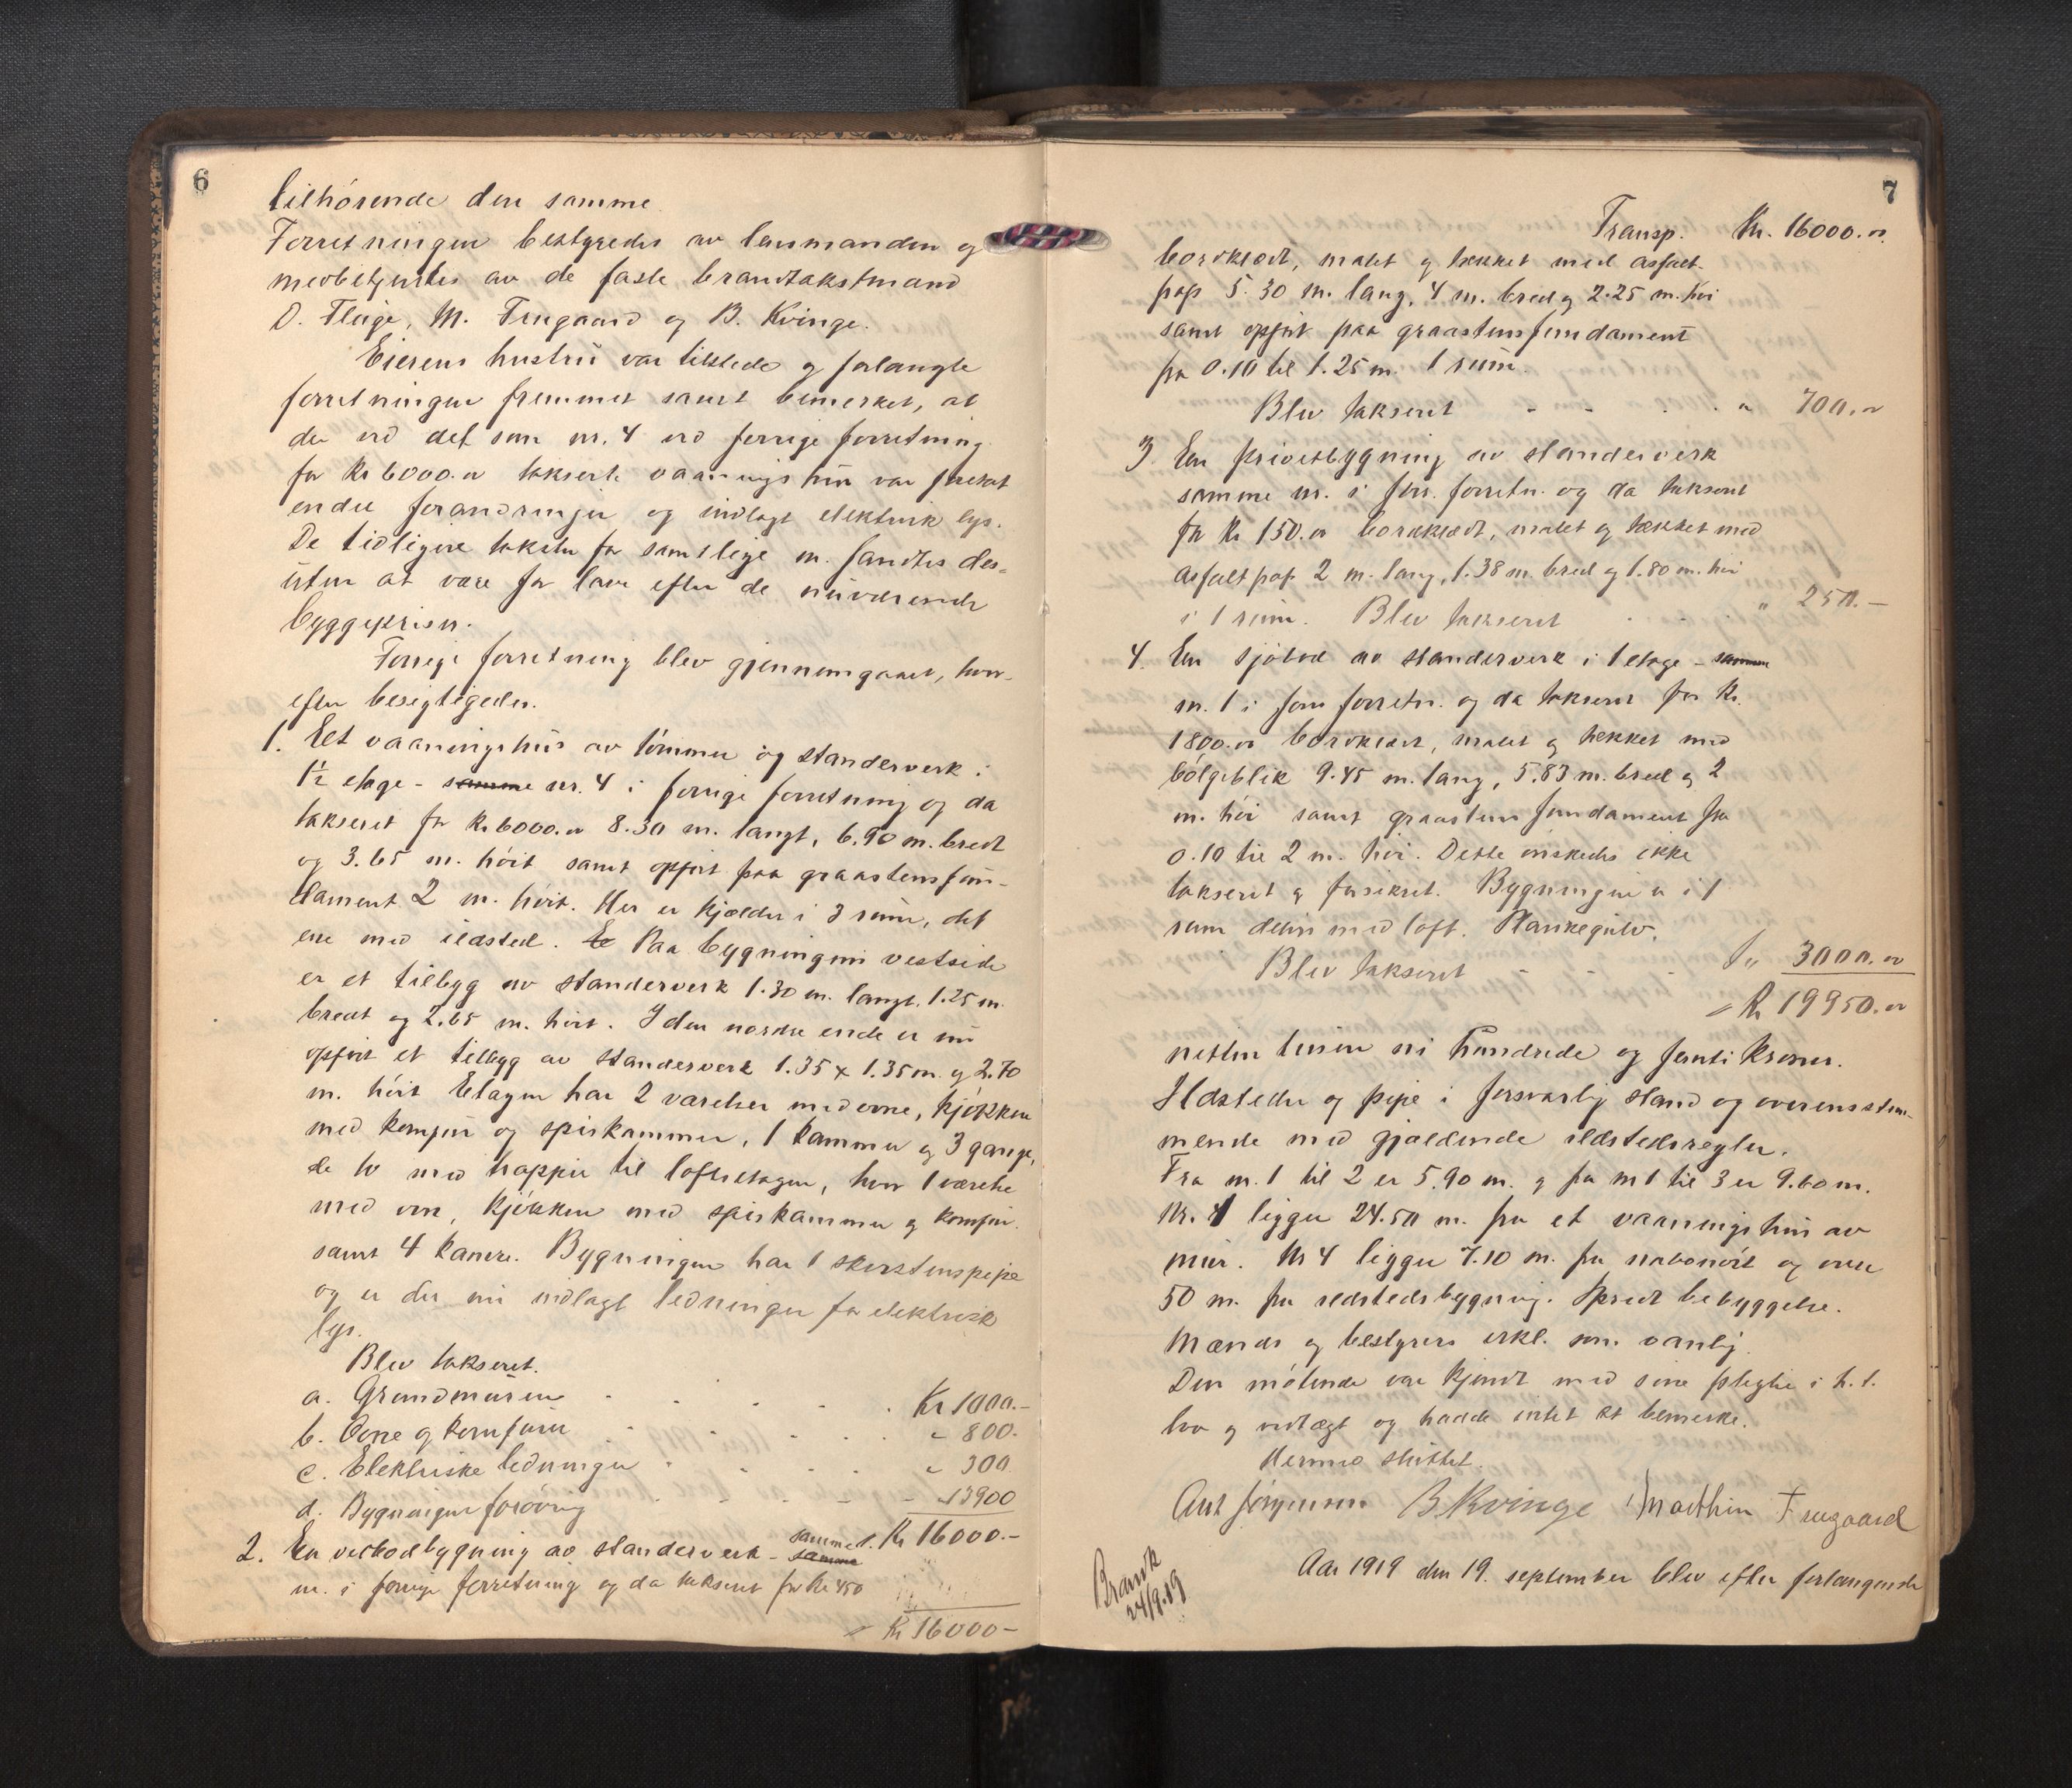 6
tilhørende den samme.
Forretningen bestyredes av lensmanden og
medbetjentes av de faste brandtakstmænd
O. Fleige, M. Frugaard og B. Kvinge.
Eierens hustru var tilstede og forlangte
forretningen fremmet samt bemerket, at
der ved det som nr. 4 ved forrige forretning
for Kr 6000.00 takserte vaaningshus var foretat
endel forandringer og indlagt elektrisk lys.
De tidligere takster for samtlige nr. fandtes des-
uten at være for lave efter de nuværende
byggepriser.
Forrige forretning blev gjennemgaaet, hvor-
efter besigtigedes.
1. Et vaaningshus av tømmer og standerverk i
1½ etage - samme nr. 4 i forrige forretning og da
takseret for Kr 6000.00 8.30 m. langt, 6.90 m. bredt
og 3.65 m. høit samt opført paa graastensfun-
dament 2 m. høit. Her er kjælder i 3 rum, det
ene med ildsted. Paa bygningens vestside
er et tilbygg av standerverk 1.30 m. langt. 1.25 m.
bredt og 2.65 m. høit. I den nordre ende er nu
opført et tilbygg av standerverk 1.35 x 1.35 m. og 2.70
m. høit Etagen har 2 værelser med ovne, kjøkken
med komfur og spiskammer, 1 kammer og 3 gange,
de to med trapper til loftsetagen, hvor 1 værelse
med ovn, kjøkken med spiskammer og komfur.
samt 4 kamre. Bygningen har 1 skorstenspipe
og er der nu indlagt ledninger for elektrisk
lys.
Blev takseret.
a. Grundmuren Kr 1000.-
b. Ovne og komfurer " 800.
c. Elektriske ledninger " 300
d. Bygningen forøvrig " 13900
s. Kr 16000.-
2. En vedbodbygning av standerverk - samme samme
nr. i forrige forretning og da takseret for Kr 450
Kr 16000-
7
Transp. Kr. 16000.00
bordklædt, malet og tækket med asfalt-
pap 5.30 m. lang, 4 m. bred og 2.25 m. høi
samt opført paa graastensfundament
fra 0.10 til 1.25 m. 1 rum.
Blev takseret " 700.00
3. En privetbygning av standerverk
samme nr. i forr. forretn. og da takseret
for Kr 150.00 bordklædt, malet og tækket med
asfaltpap 2 m. lang, 1.38 m. bred og 1.80 m. høi
i 1 rum. Blev takseret " 250.-
4. En sjøbod av standerverk i 1 etage - samme
nr. 1 i forr forretn. og da takseret for Kr.
1800.00 bordklædt, malet og tækket med
bølgeblik 9.45 m. lang, 5.83 m. bred og 2
m. høi samt graastens fundament fra
0.10 til 2 m. høi. Dette ønskedes ikke
takseret og forsikret. Bygningen er i 1
rum delvis med loft. Plankegulv.
Blev takseret " 3000.00
Kr 19950.00
nitten tusen ni hundrede og femti kroner.
Ildsteder og pipe i forsvarlig stand og overensstem-
mende med gjældende ildstedsregler.
Fra nr. 1 til 2 er 5.90 m. og fra nr 1 til 3 er 9.60 m.
Nr. 1 ligger 24.50 m. fra et vaaningshus av
mur. Nr 4 ligger 7.10 m. fra nabonøst og over
50 m. fra ildstedsbygning. Spredt bebyggelse.
Mænds og bestyrers erkl. som vanlig.
Den møtende var kjendt med sine pligter i h. t.
lov og vedtægt og hadde intet at bemerke.
Hermed sluttet.
Ant Jørgensen B Kvinge Marthin Frugaard
Brandk
24/9.19
Aar 1919 den 19. september blev efter forlangende